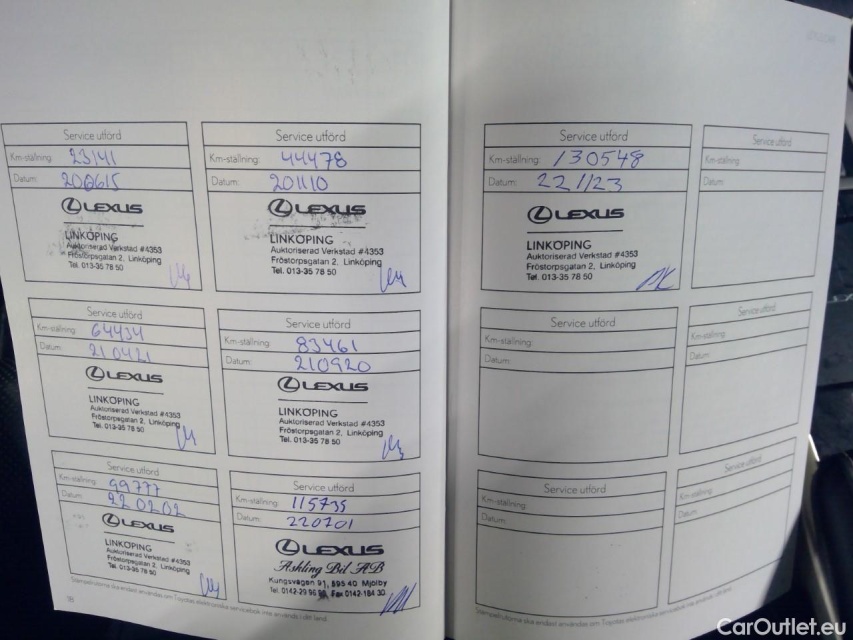 Service utförd
Km-ställning: 23141
Datum: 200615
LEXUS
LINKÖPING
Auktoriserad Verkstad #4353
Fröstorpsgatan 2, Linköping
Tel. 013-35 78 50
Service utförd
Km-ställning: 44478
Datum: 201110
LEXUS
LINKÖPING
Auktoriserad Verkstad #4353
Fröstorpsgatan 2, Linköping
Tel. 013-35 78 50
Service utförd
Km-ställning: 64434
Datum: 210421
LEXUS
LINKÖPING
Auktoriserad Verkstad #4353
Fröstorpsgatan 2, Linköping
Tel. 013-35 78 50
Service utförd
Km-ställning: 83461
Datum: 210920
LEXUS
LINKÖPING
Auktoriserad Verkstad #4353
Fröstorpsgatan 2, Linköping
Tel. 013-35 78 50
Service utförd
Km-ställning: 99777
Datum: 220202
LEXUS
LINKÖPING
Auktoriserad Verkstad #4353
Fröstorpsgatan 2, Linköping
Tel. 013-35 78 50
Service utförd
Km-ställning: 115735
Datum: 220701
LEXUS
Ashling Bil AB
Kungsvägen 91, 595 40 Mjölby
Tel. 0142-29 96 Fax 0142-184 30
Stämpelrutorna ska endast användas om Toyotas elektroniska servicebok inte används i ditt land.
Service utförd
Km-ställning: 130548
Datum: 221123
LEXUS
LINKÖPING
Auktoriserad Verkstad #4353
Fröstorpsgatan 2, Linköping
Tel. 013-35 78 50
Service utförd
Km-ställning:
Datum:
Service utförd
Km-ställning:
Datum:
Service utförd
Km-ställning:
Datum:
Service utförd
Km-ställning:
Datum:
Service utförd
Km-ställning:
Datum:
Stämpelrutorna ska endast användas om Toyotas elektroniska servicebok inte används i ditt land.
CarOutlet.eu